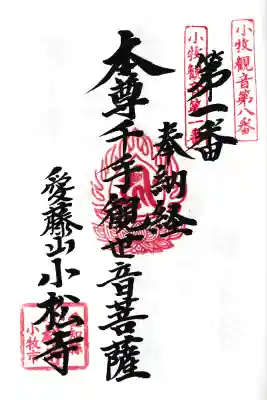 小牧観音第八番
小牧観音第一番
第一番
奉納経
本尊千手観世音菩薩
愛藤山小松寺